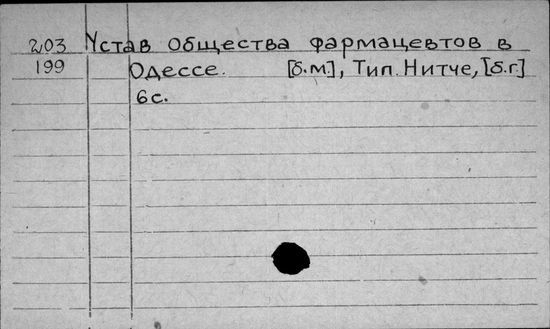 203 Устав общества фармацевтов в
199 Одессе. [б.м], Тип. Нитче, [б.г.]
6с.